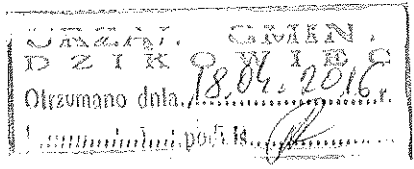 URZĄD GMIN.
DZIKOWIEC
Otrzymano dnia 18.04.2016 r.
podpis